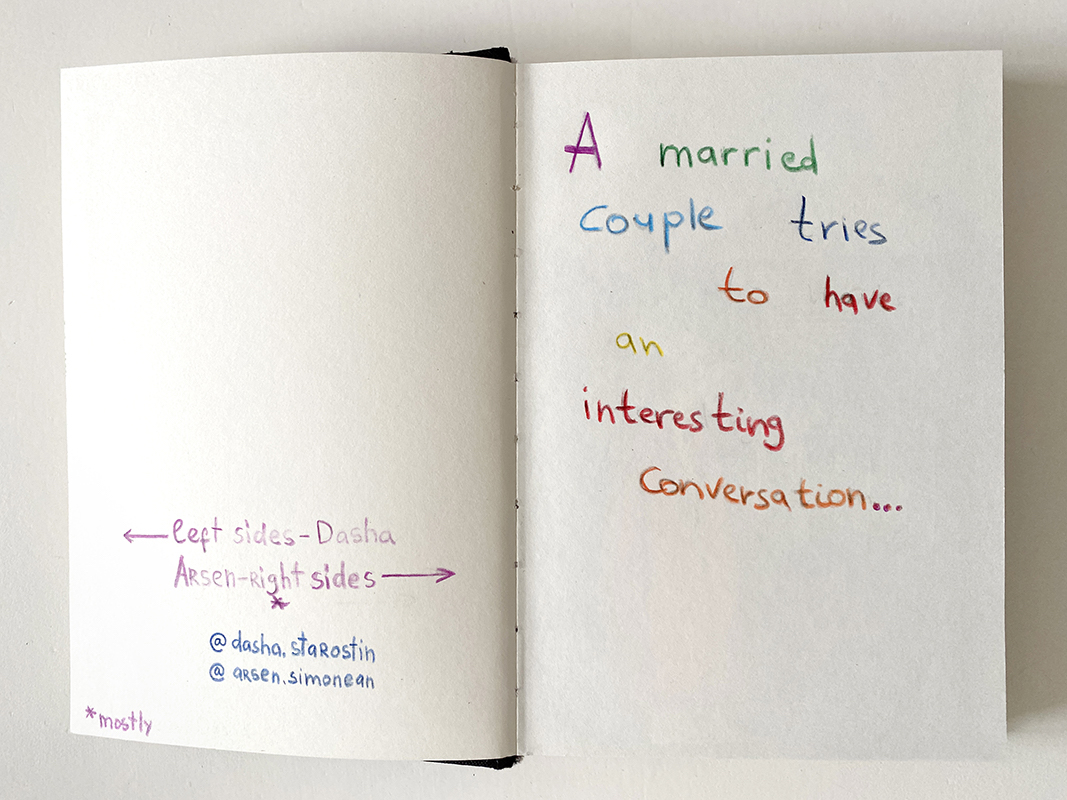 ← left sides - Dasha
Arsen - Right sides →
*
@dasha.starostin
@arsen.simonean
*mostly
A married
Couple tries
to have
an
interesting
Conversation...